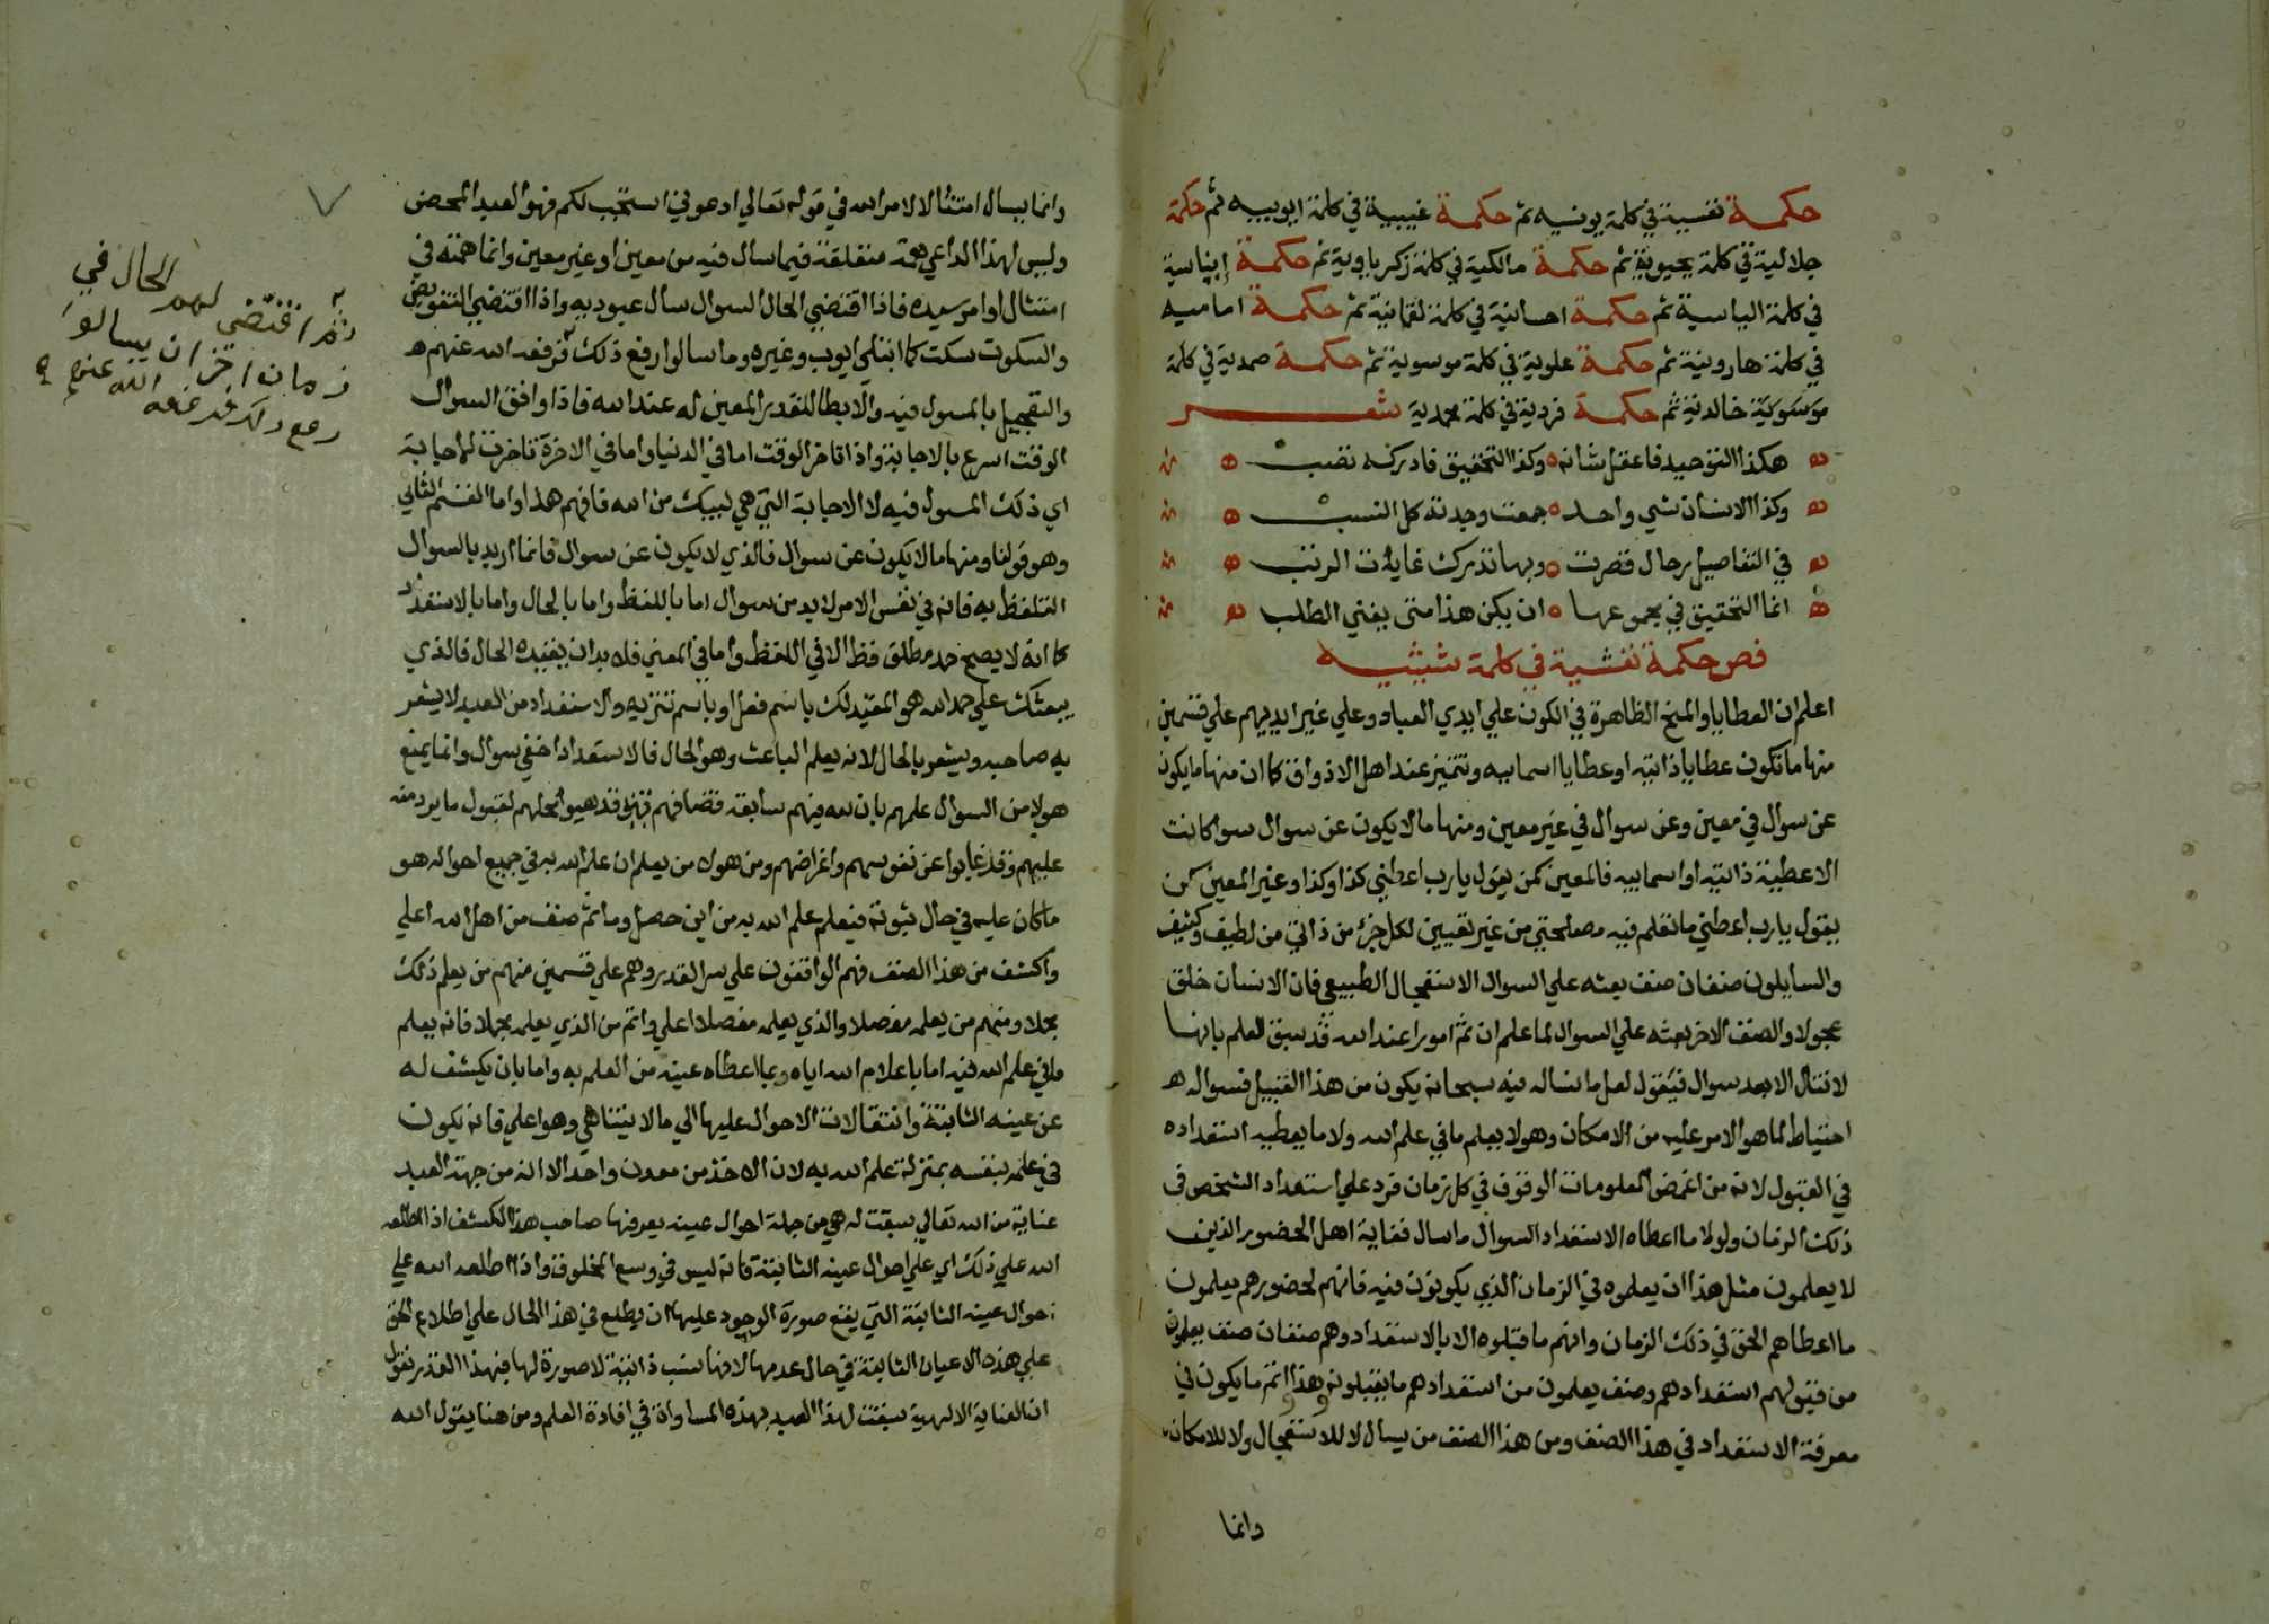 حكمة نفسية في كلمة يونسيه ثم حكمة غيبية في كلمة ايوبيه ثم حكمة
جلالية في كلمة يحيوية ثم حكمة مالكية في كلمة زكرياوية ثم حكمة إيناسية
في كلمة الياسية ثم حكمة احسانية في كلمة لقمانية ثم حكمة اماميه
في كلمة هارونية ثم حكمة علوية في كلمة موسوية ثم حكمة صمدية في كلمة
خالدية ثم حكمة فردية في كلمة محمدية شعر
هكذا التوحيد فاعقل شانه وكذا التحقيق فادركه تصب
وكذا الانسان شي واحد جمعت وحدته كل النسب
في التفاصيل رجال قصرت وبها تدرك غايات الرتب
انما التحقيق في مجموعها ان يكن هذا متى يفني الطلب
فص حكمة نفثية في كلمة شيثيه
اعلم ان العطايا والمنح الظاهرة في الكون علي ايدي العباد وعلي غير ايديهم علي قسمين
منها ما تكون عطايا ذاتيه او عطايا اسماييه وتتميز عند اهل الاذواق كما ان منها ما يكون
عن سوال في معين وعن سوال في غير معين ومنها ما لا يكون عن سوال سوا كانت
الاعطية ذاتيه او اسماييه فالمعين كمن يقول يا رب اعطني كذا وكذا وغير المعين كمن
يقول يا رب اعطني ما تعلم فيه مصلحتي من غير تعيين لكل جزء من ذاتي من لطيف وكثيف
والسايلون صنفان صنف بعثه علي السوال الاستعجال الطبيعي فان الانسان خلق
عجولا والصنف الاخر بعثه علي السوال لما علم ان ثم امورا عند الله قد سبق العلم بانها
لا تنال الا بعد سوال فيقول لعل ما نساله فيه سبحانه يكون من هذا القبيل فسواله
احتياط لما هو الامر عليه من الامكان وهو لا يعلم ما في علم الله ولا ما يعطيه استعداده
في القبول لانه من اغمض المعلومات الوقوف في كل زمان فرد علي استعداد الشخص في
ذلك الزمان ولولا ما اعطاه الاستعداد السوال ما سال فغاية اهل الحضور الذين
لا يعلمون مثل هذا ان يعلموه في الزمان الذي يكونون فيه فانهم لحضورهم يعلمون
ما اعطاهم الحق في ذلك الزمان وانهم ما قبلوه الا بالاستعداد وهم صنفان صنف يعلمون
من قبولهم استعدادهم وصنف يعلمون من استعدادهم ما يقبلونه وهذا اتم ما يكون في
معرفة الاستعداد في هذا الصنف ومن هذا الصنف من يسال لا للاستعجال ولا للامكان
وانما
وانما يسال امتثالا لامر الله في قوله تعالي ادعوني استجب لكم فهو العبد المحض
وليس لهذا الداعي همة متعلقة فيما سال فيه من معين او غير معين وانما همته في
امتثال اوامر سيده فاذا اقتضي الحال السوال سال عبوديه واذا اقتضي التفويض
والسكوت سكت كما ابتلي ايوب وغيره وما سالوا رفع ذلك فرفعه الله عنهم
والتعجيل بالمسول فيه والابطا للقدر المعين له عند الله فاذا وافق السوال
الوقت اسرع بالاجابة واذا تاخر الوقت اما في الدنيا واما في الاخرة تاخرت الاجابة
اي ذلك المسول فيه لا الاجابة التي هي لبيك من الله فافهم هذا واما القسم الثاني
وهو قولنا ومنها ما لا يكون عن سوال فالذي لا يكون عن سوال فانما اريد بالسوال
التلفظ به فانه في نفس الامر لا بد من سوال اما باللفظ واما بالحال واما بالاستعداد
كما انه لا يصح حمد مطلق قط الا في اللفظ واما في المعني فله بد ان يقيده الحال فالذي
يبعثك علي حمد الله هو المقيد لك باسم فعل او باسم تنزيه والاستعداد من العبد لا يشعر
به صاحبه ويشعر بالحال لانه يعلم الباعث وهو الحال فالاستعداد اخفي سوال وانما يمنع
هولا من السوال علمهم بان لله فيهم سابقة قضا فهم قد هيوا محلهم لقبول ما يرد منه
عليهم وقد غابوا عن نفوسهم واغراضهم ومن هولا من يعلم ان علم الله به في جميع احواله هو
ما كان عليه في حال ثبوته فيعلم علم الله به من اين حصل وما ثم صنف من اهل الله اعلي
واكشف من هذا الصنف فهم الواقفون علي سر القدر وهم علي قسمين منهم من يعلم ذلك
مجملا ومنهم من يعلمه مفصلا والذي يعلمه مفصلا اعلي واتم من الذي يعلمه مجملا فانه يعلم
ما في علم الله فيه اما باعلام الله اياه بما اعطاه عينه من العلم به واما بان يكشف له
عن عينه الثابتة وانتقالات الاحوال عليها الي ما لا يتناهي وهو اعلي فانه يكون
في علمه بنفسه بمنزلة علم الله به لان الاخذ من معدن واحد الا انه من جهة العبد
عناية من الله تعالي سبقت له هي من جملة احوال عينه يعرفها صاحب هذا الكشف اذا اطلعه
الله علي ذلك اي علي احوال عينه الثابتة فانه ليس في وسع المخلوق واذا اطلعه الله علي
احوال عينه الثابتة التي يقع صورة الوجود عليها ان يطلع في هذا الحال علي اطلاع الحق
علي هذه الاعيان الثابتة في حال عدمها لانها نسب ذاتية لا صورة لها فبهذا القدر نقول
ان العناية الالهية سبقت لهذا العبد بهذه المساواة في افادة العلم ومن هنا يقول الله
ثم اقتضى لهم الحال في
زمان اخر ان يسالوا
رفع ذلك فرفعه الله عنهم
٧